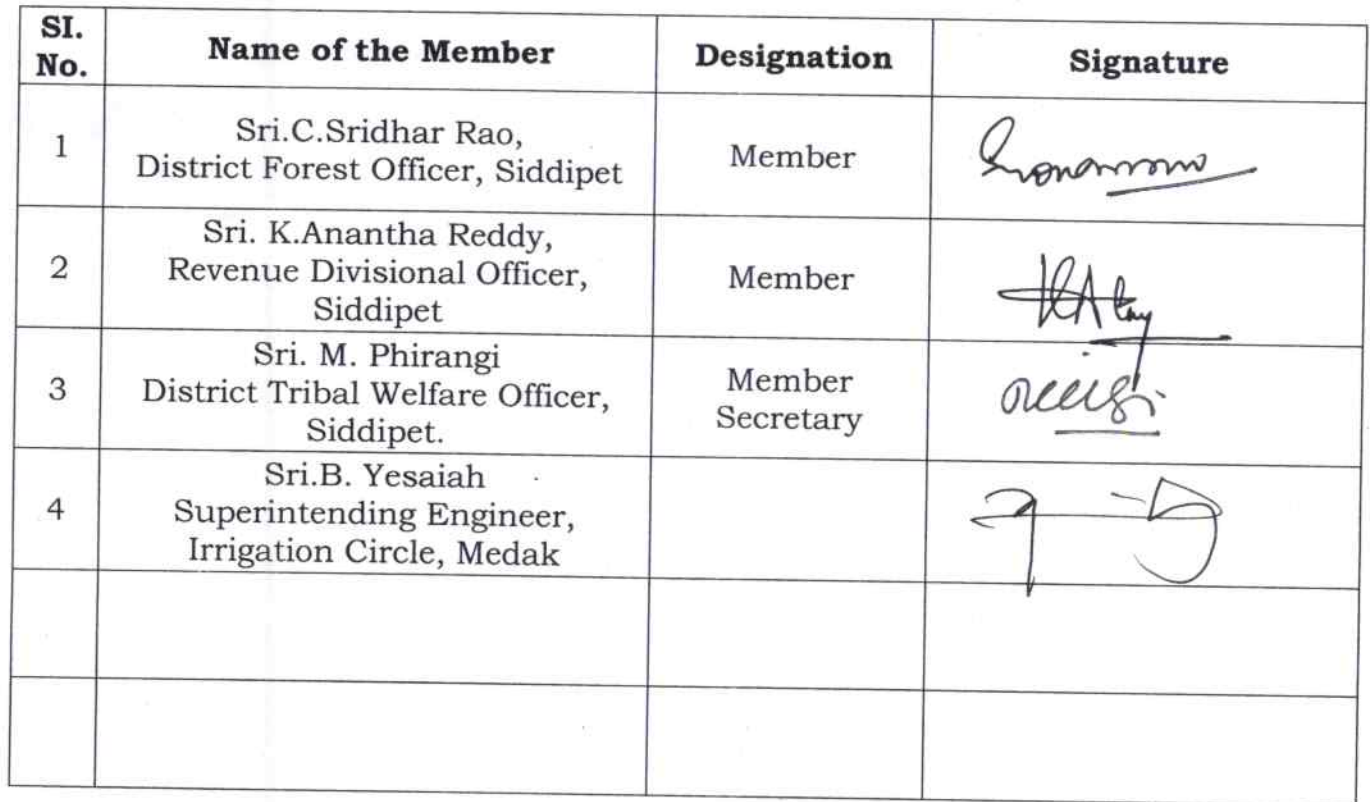 SI. No. Name of the Member Designation Signature
1 Sri.C.Sridhar Rao,
District Forest Officer, Siddipet Member
2 Sri. K.Anantha Reddy,
Revenue Divisional Officer,
Siddipet Member
3 Sri. M. Phirangi
District Tribal Welfare Officer,
Siddipet. Member
Secretary
4 Sri.B. Yesaiah
Superintending Engineer,
Irrigation Circle, Medak